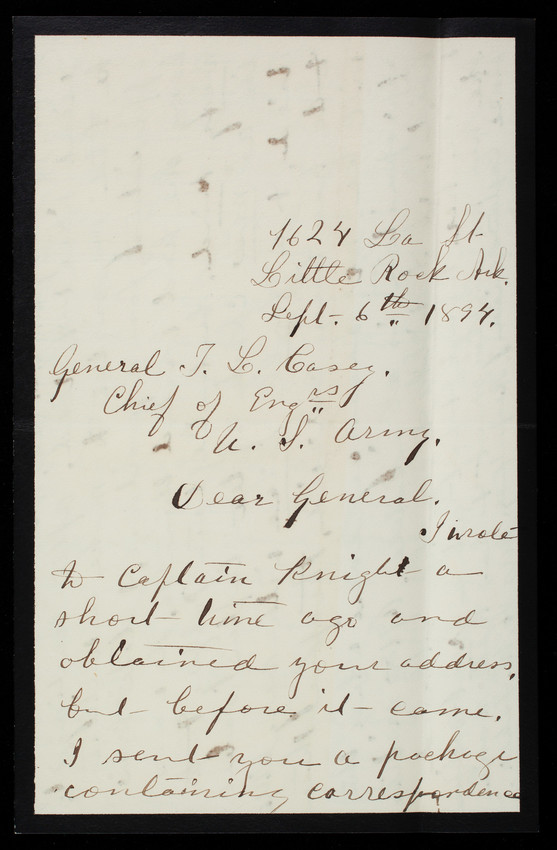 1624 La St
Little Rock Ark.
Sept. 6th 1894.
General T. L. Casey.
Chief of Engrs
U. S. Army.
Dear General.
I wrote
to Captain Knight a
short time ago and
obtained your address,
but before it came.
I sent you a package
containing correspondence